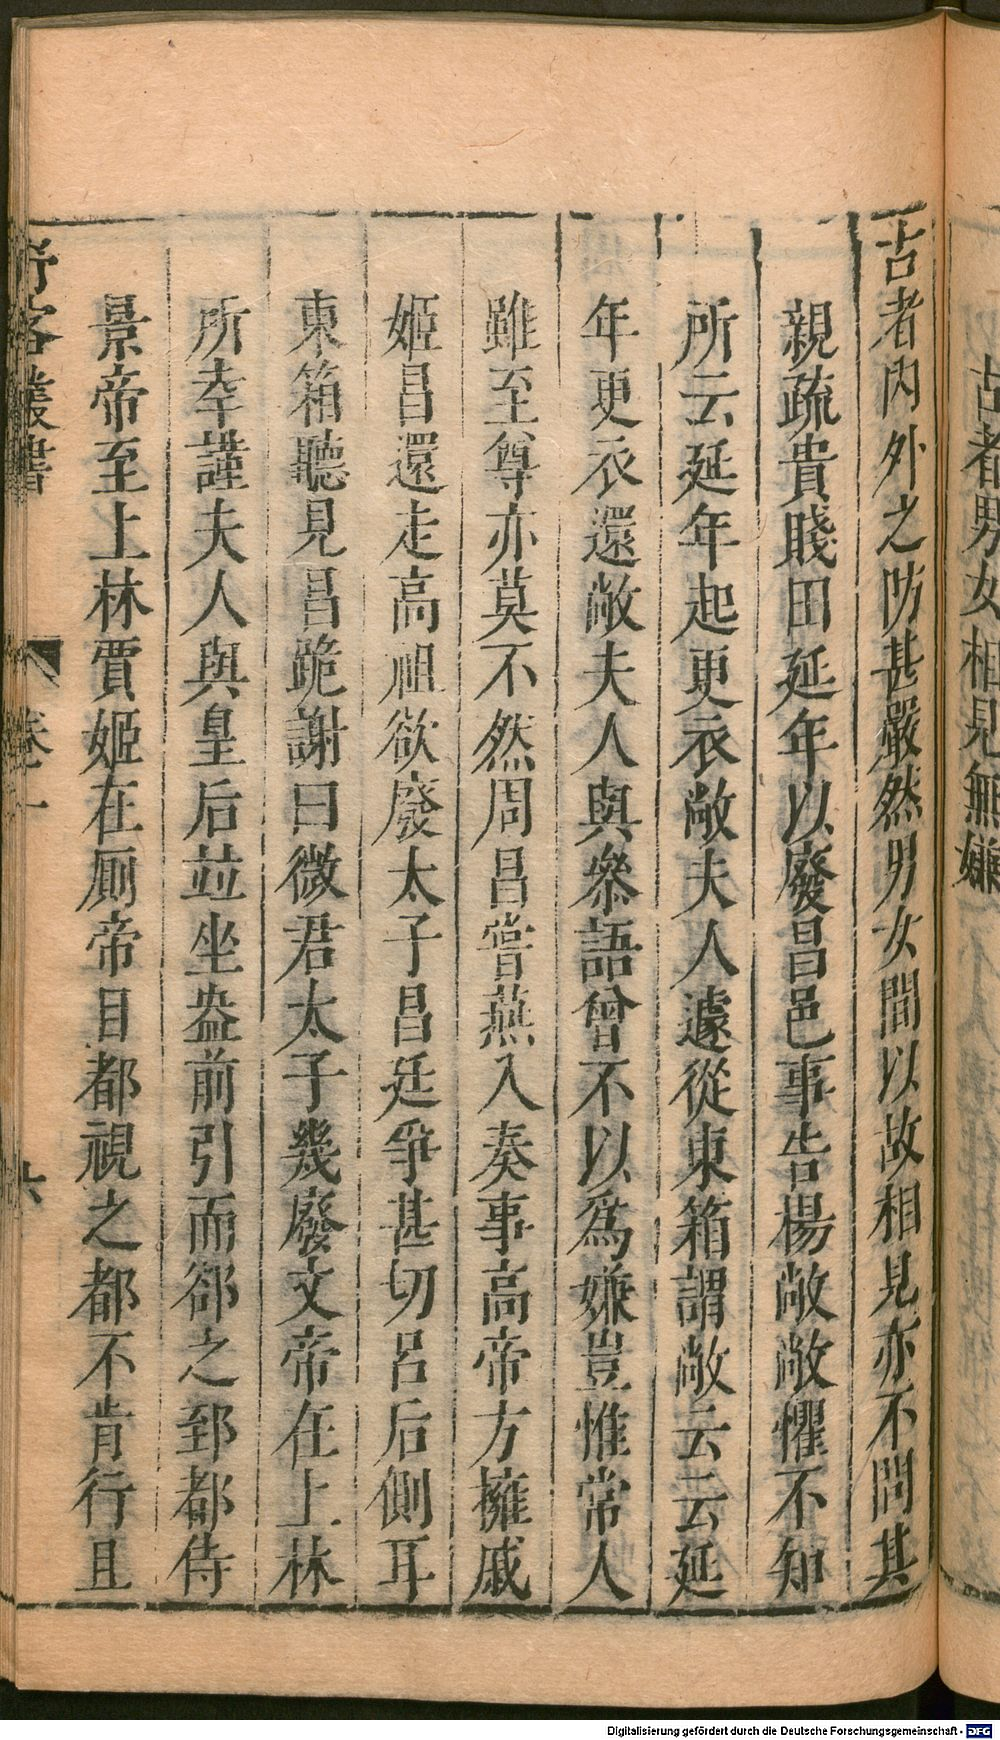 古者男女相見無嫌
古者內外之防甚嚴然男女間以故相見亦不問其
親疏貴賤田延年以廢昌邑事告楊敞敞懼不知
所云延年起更衣敞夫人遽從東箱謂敞云云延
年更衣還敞夫人與叅語曾不以爲嫌豈惟常人
雖至尊亦莫不然周昌嘗燕入奏事高帝方擁戚
姬昌還走高祖欲廢太子昌廷爭甚切呂后側耳
東箱聽見昌跪謝曰微君太子幾廢文帝在上林
所幸謹夫人與皇后並坐盎前引而郤之郅都侍
景帝至上林賈姬在厠帝目都視之都不肯行且
野客叢書 卷一 六
Digitalisierung gefördert durch die Deutsche Forschungsgemeinschaft - DFG